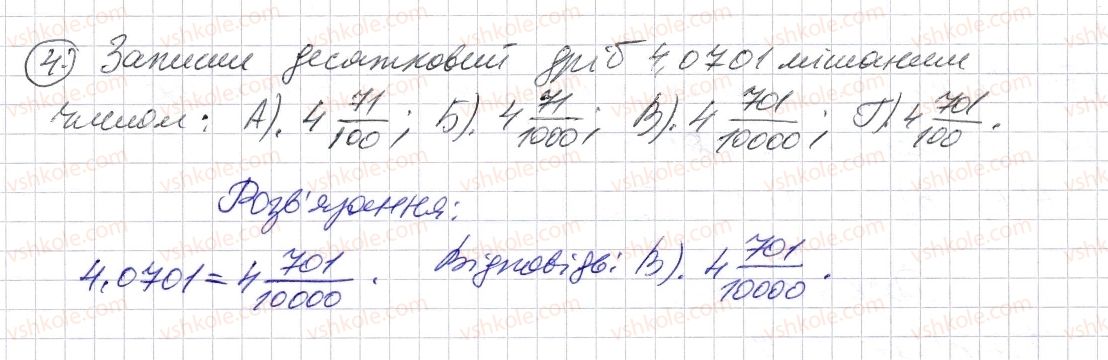 4. Запиши десятковий дріб 4,0701 мішаним
числом: А). 4 71/100; Б). 4 71/1000; В). 4 701/10000; Г). 4 701/100.
Розв'язання:
4,0701 = 4 701/10000. Відповідь: В). 4 701/10000.